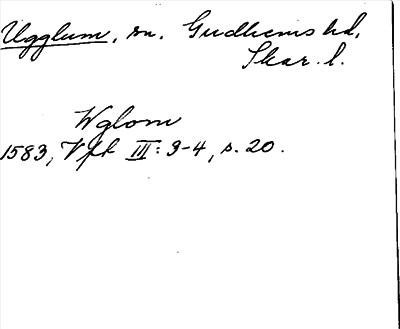 Ugglum, sn. Gudhems hd,
Skar. l.
Wglom
1583, Vft III: 3-4, s. 20.